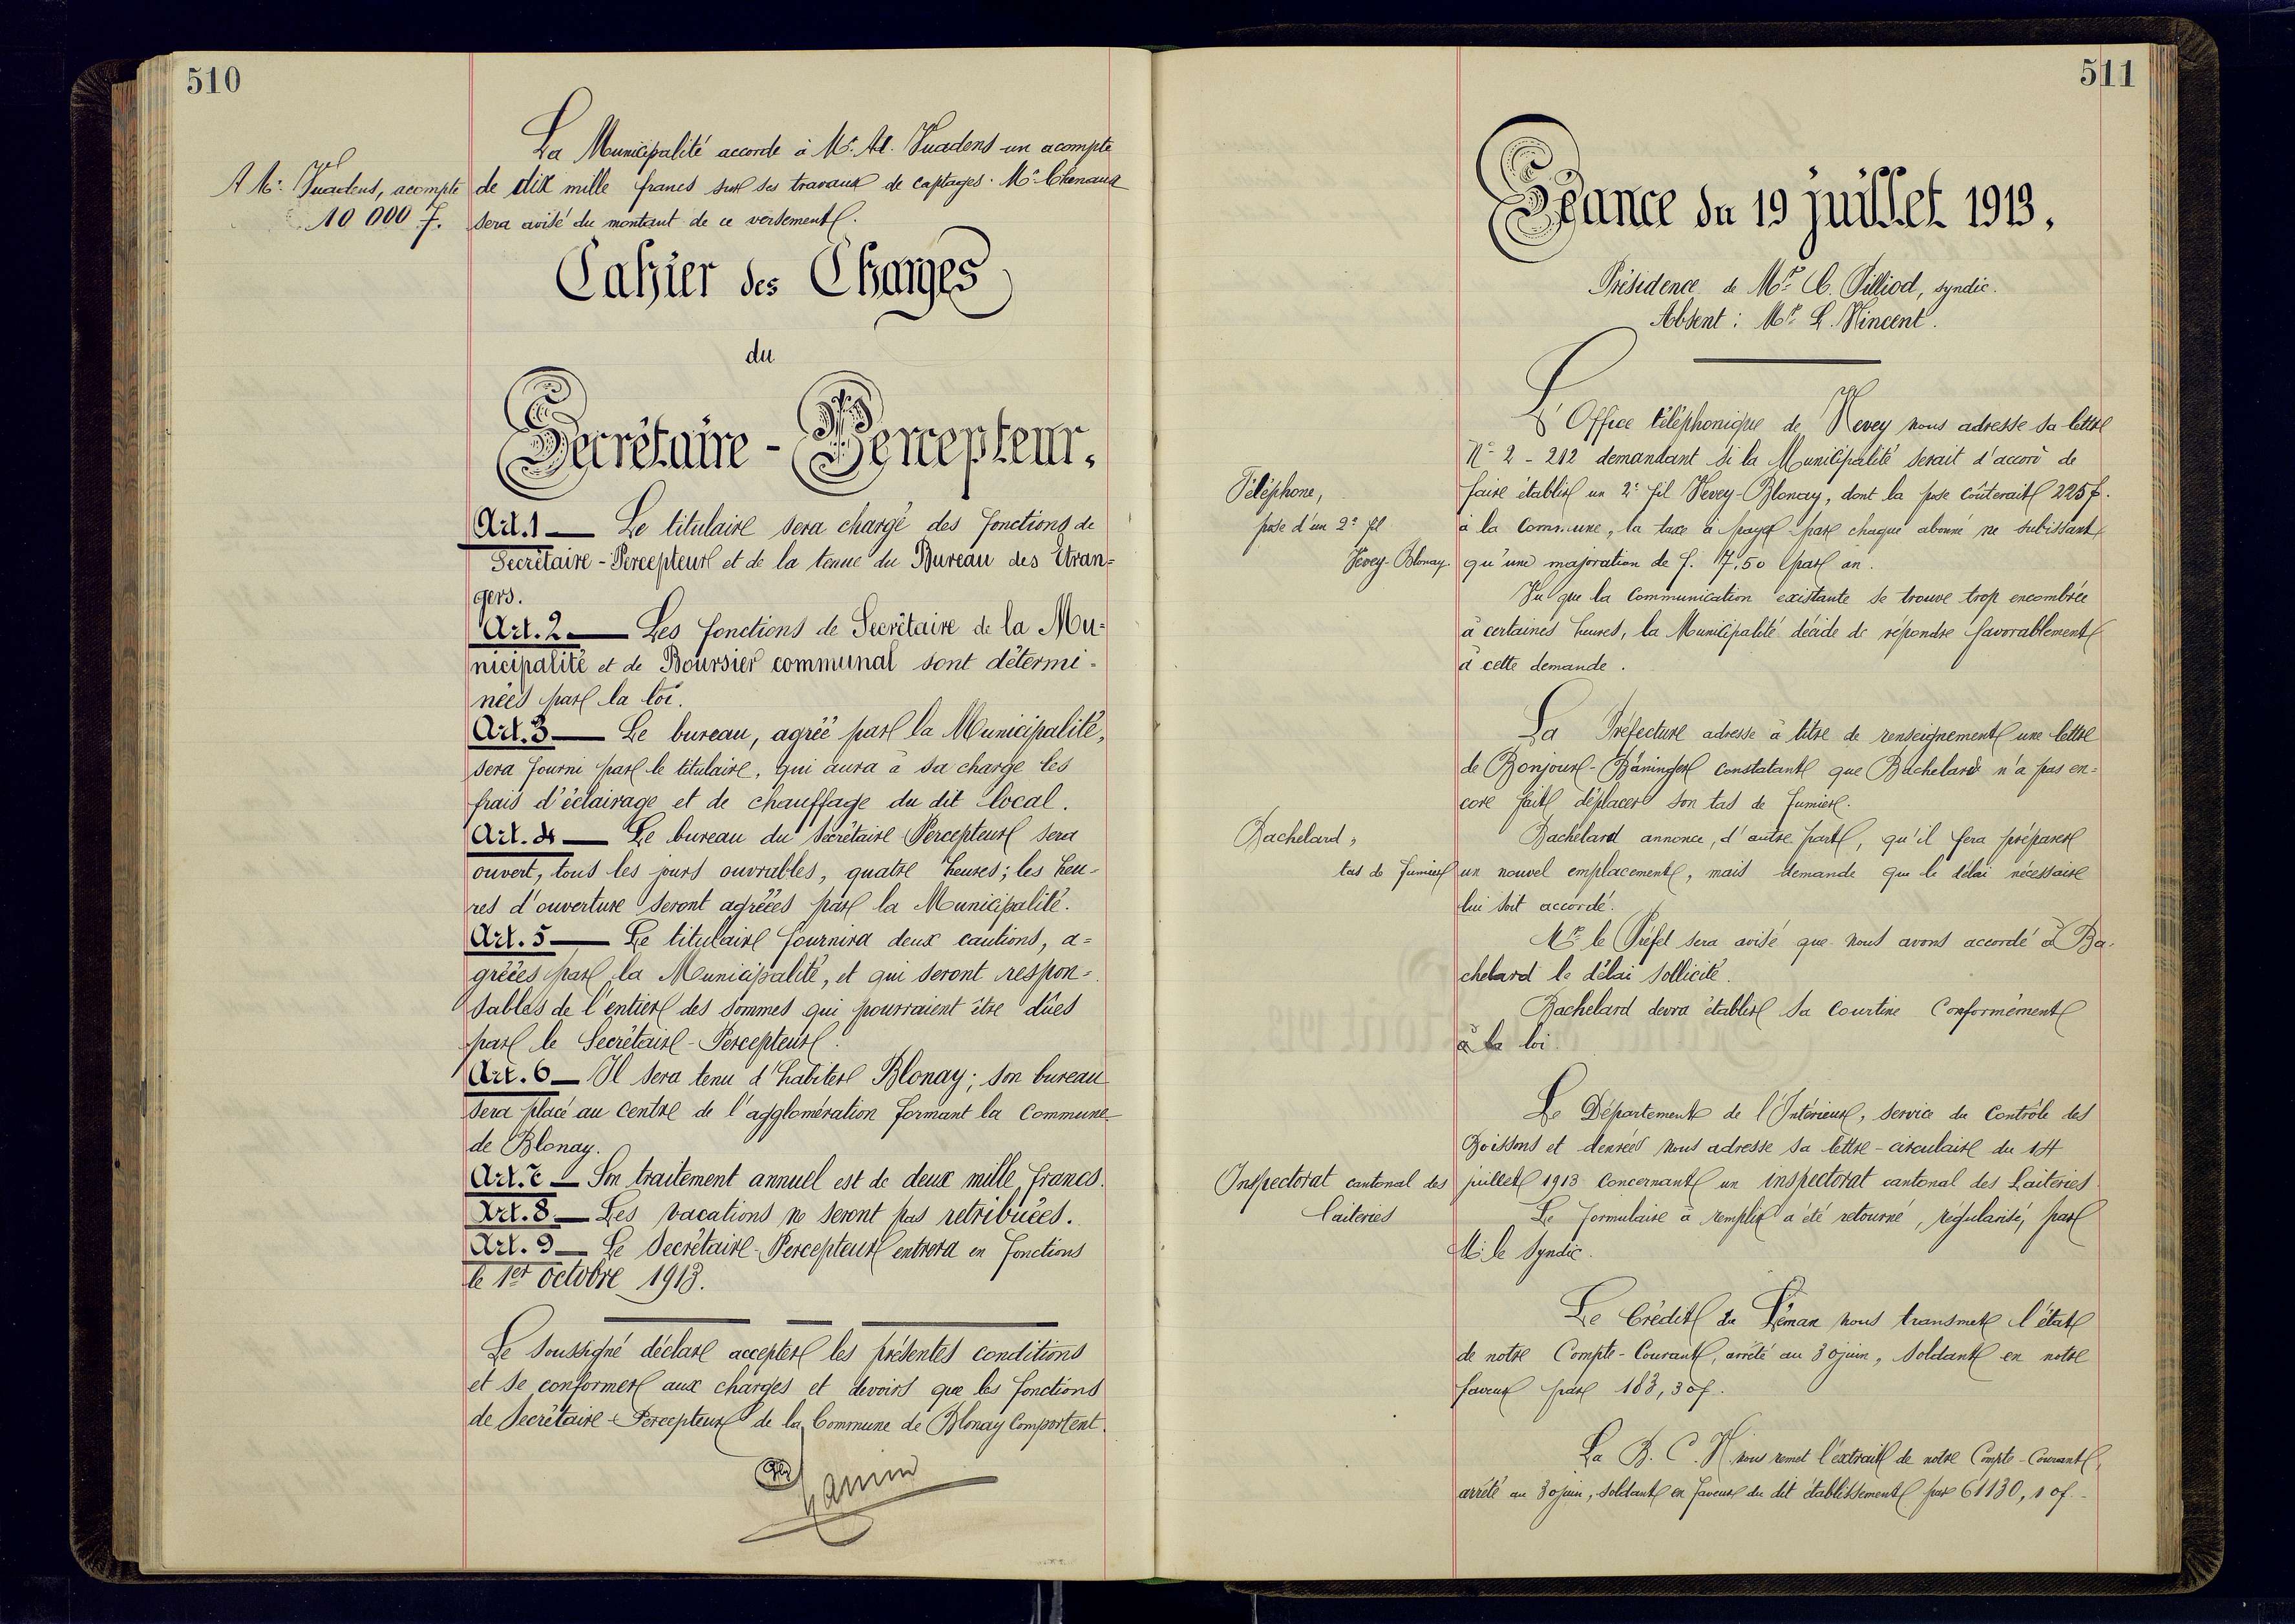 510
La Municipalité accorde à Mr. Ad. Vuadens un acompte
A Mr. Vuadens, acompte
de dix mille francs sur ses travaux de captages. Mr. Chenaux
10 000 f.
sera avisé du montant de ce versement.
Cahier des Charges
du
Secrétaire - Percepteur.
Art. 1 — Le titulaire sera chargé des fonctions de
Secrétaire - Percepteur et de la tenue du Bureau des Etran=
gers.
Art. 2 — Les fonctions de Secrétaire de la Mu=
nicipalité et de Boursier communal sont détermi=
nées par la loi.
Art. 3 — Le bureau, agréé par la Municipalité,
sera fourni par le titulaire, qui aura à sa charge les
frais d'éclairage et de chauffage du dit local.
Art. 4 — Le bureau du Secrétaire Percepteur sera
ouvert, tous les jours ouvrables, quatre heures; les heu=
res d'ouverture seront agréées par la Municipalité.
Art. 5 — Le titulaire fournira deux cautions, a=
gréées par la Municipalité, et qui seront respon=
sables de l'entier des sommes qui pourraient être dûes
par le Secrétaire - Percepteur.
Art. 6 — Il sera tenu d'habiter Blonay; son bureau
sera placé au centre de l'agglomération formant la Commune
de Blonay.
Art. 7 — Son traitement annuel est de deux mille francs.
Art. 8 — Les vacations ne seront pas retribuées.
Art. 9 — Le Secrétaire - Percepteur entrera en fonctions
le 1er octobre 1913.
Le soussigné déclare accepter les présentes conditions
et se conformer aux charges et devoirs que les fonctions
de Secrétaire - Percepteur de la Commune de Blonay comportent.
511
Séance du 19 juillet 1913.
Présidence de Mr. C. Pilliod, syndic.
Absent : Mr. L. Vincent.
L'Office téléphonique de Vevey nous adresse sa lettre
No 2 - 212 demandant si la Municipalité serait d'accord de
Téléphone,
faire établir un 2e fil Vevey-Blonay, dont la pose coûterait 225 f.
pose d'un 2e fl
à la Commune, la taxe à payer par chaque abonné ne subissant
Vevey-Blonay.
qu'une majoration de f. 7,50 par an.
Vu que la communication existante se trouve trop encombrée
à certaines heures, la Municipalité décide de répondre favorablement
à cette demande.
La Préfecture adresse à titre de renseignement une lettre
de Bonjour-Bäninger constatant que Bachelard n'a pas en=
core fait déplacer son tas de fumier.
Bachelard,
Bachelard annonce, d'autre part, qu'il fera préparer
tas de fumier
un nouvel emplacement, mais demande que le délai nécessaire
lui soit accordé.
Mr le Préfet sera avisé que nous avons accordé à Ba-
chelard le délai sollicité.
Bachelard devra établir sa courtine conformément
à la loi
Le Département de l'Intérieur, service du Contrôle des
Boissons et denrées nous adresse sa lettre-circulaire du 14
Inspectorat cantonal des
juillet 1913 concernant un inspectorat cantonal des Laiteries
laiteries
Le formulaire à remplir a été retourné, régularisé, par
M. le Syndic.
Le Crédit du Léman nous transmet l'état
de notre Compte-Courant, arrêté au 30 juin, soldant en notre
faveur par 183,30 f.
La B. C. V. nous remet l'extrait de notre Compte-Courant,
arrêté au 30 juin, soldant en faveur du dit établissement par 61130,10 f.